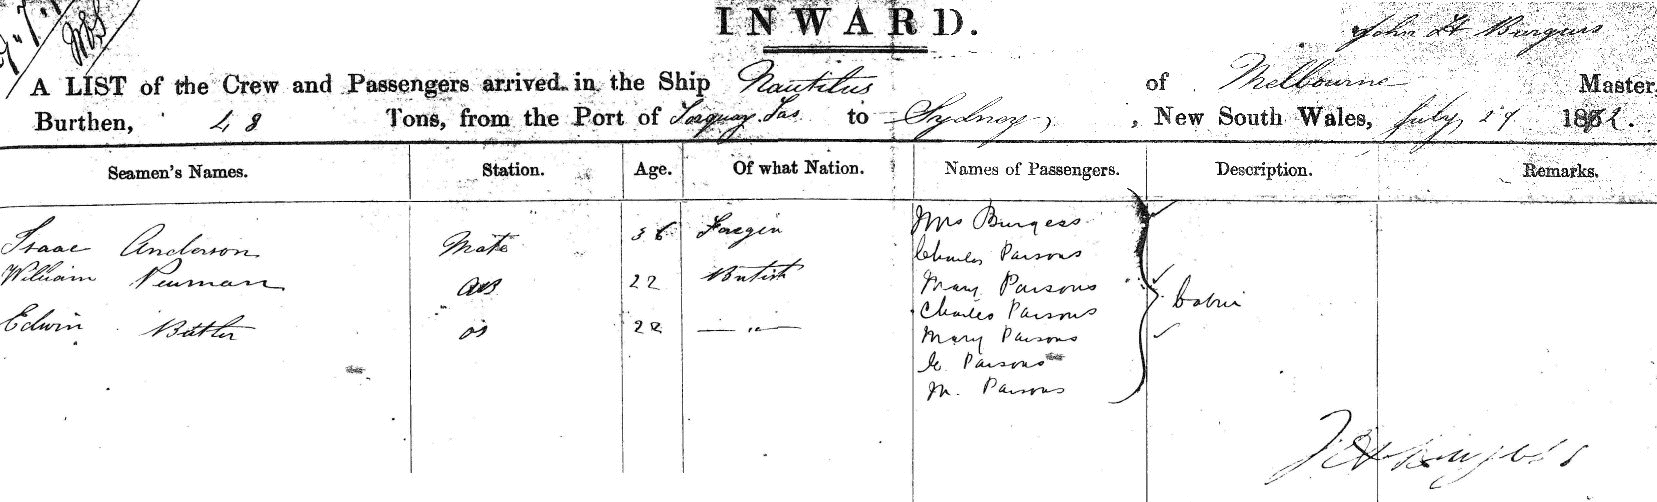 INWARD.
John H Burgess
A LIST of the Crew and Passengers arrived in the Ship Nautilus of Melbourne Master,
Burthen, 48 Tons, from the Port of Torquay Tas to Sydney, New South Wales, July 29 1872.
Seamen's Names. Station. Age. Of what Nation. Names of Passengers. Description. Remarks.
Mrs Burgess
Isaac Anderson Mate 36 Foregin
Charles Parsons
William Penman AB 22 British Mary Parsons
Charles Parsons Cabin
Edwin Butler OS 22 — " — Mary Parsons
Parsons
M. Parsons